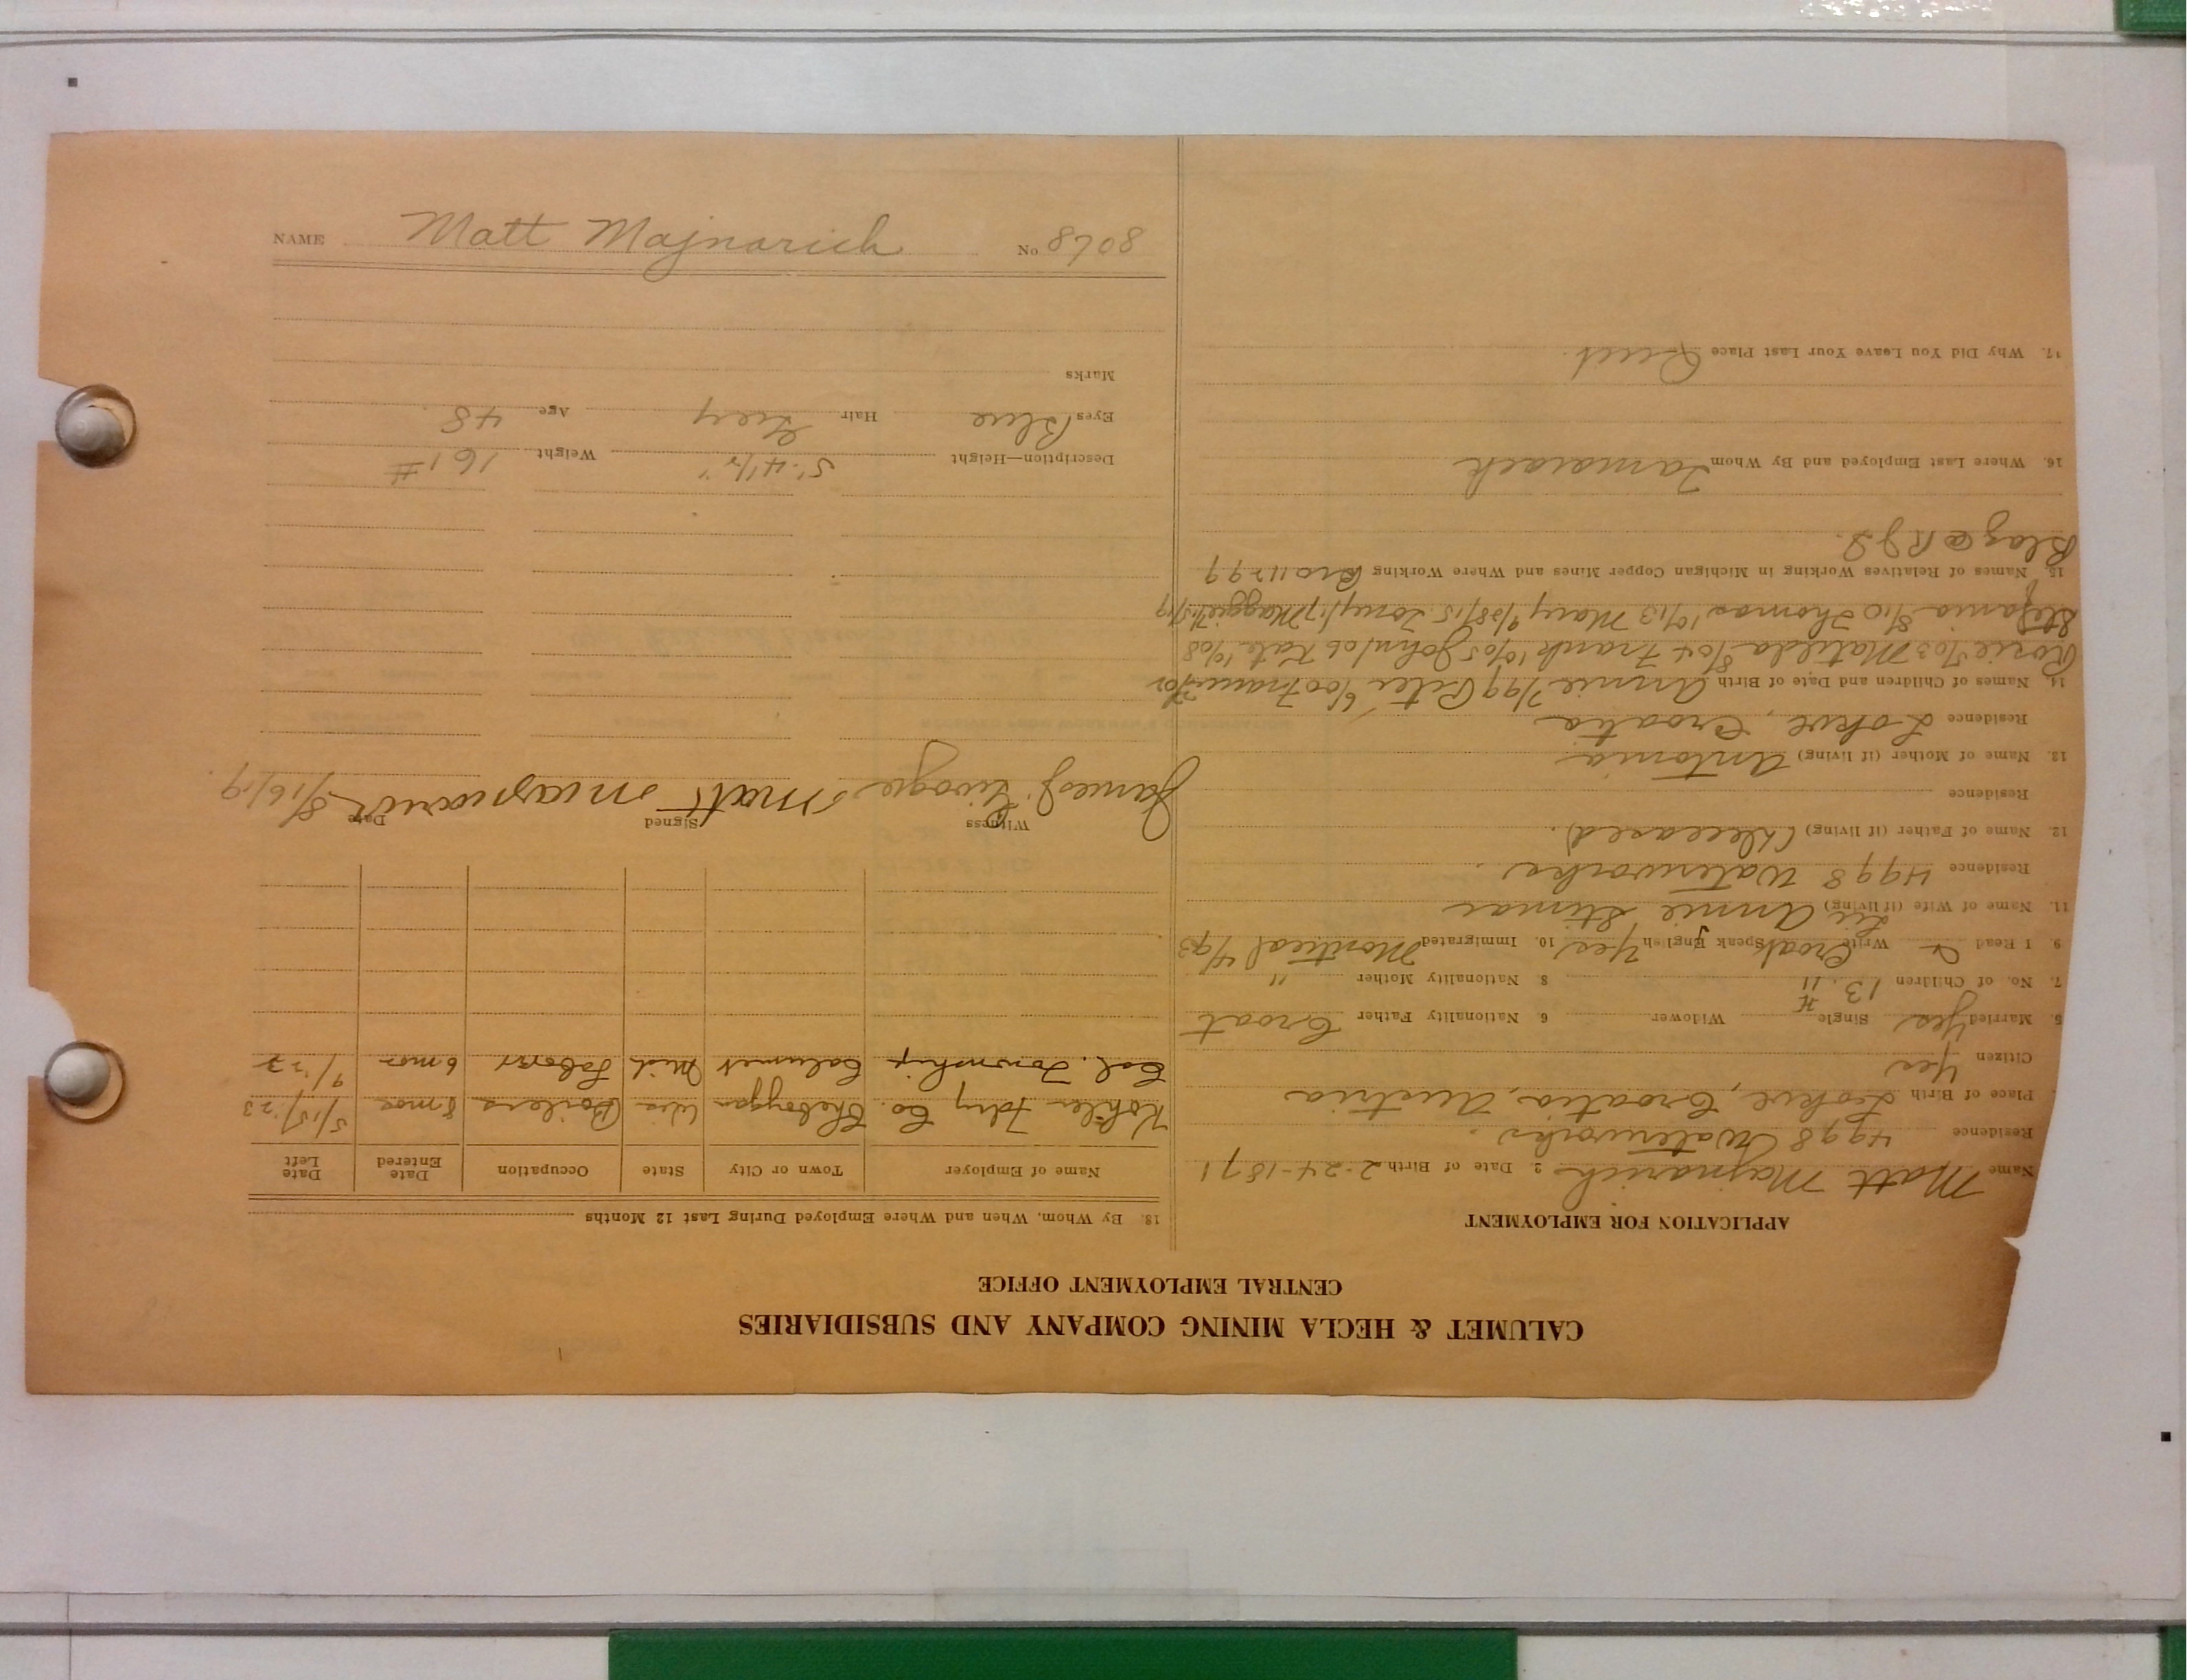 CALUMET & HECLA MINING COMPANY AND SUBSIDIARIES
CENTRAL EMPLOYMENT OFFICE
APPLICATION FOR EMPLOYMENT
Name Matt Majnarich 2. Date of Birth 2-24-1871
Residence 4998 Waterworks.
Place of Birth Lokve, Croatia, Austria
Citizen Yes
5. Married Yes Single Widower 6. Nationality Father Croat
7. No. of Children 13. 11 8 Nationality Mother "
9. I Read & Write Croat Speak English Yes 10. Immigrated Montreal 4/93
11. Name of Wife (if living) Annie Stimac
Residence 4998 Waterworks.
12. Name of Father (if living) (Deceased).
Residence
13. Name of Mother (if living) Antonia
Residence Lokve, Croatia
14. Names of Children and Date of Birth Annie 7/99 Peter 6/00
Rosie 5/03 Matilda 8/04 Frank 10/05 John /06 Kate 10/08
Stefania 8/10 Thomas 10/13 Mary 9/28/15 Tony /17 Maggie
15. Names of Relatives Working in Michigan Copper Mines and Where Working Bro 11299
Blaz @
16. Where Last Employed and By Whom Tamarack
17. Why Did You Leave Your Last Place Quit.
18. By Whom, When and Where Employed During Last 12 Months
Name of Employer Town or City State Occupation Date Entered Date Left
Kohler Fdry Co. Sheboygan Wis Boilers 8 mos 5/15/23
Cal. Township Calumet Mich Laborer 6 mos 9/22
Witness Signed Date
James J. Matt Majnarich 8/16/19
Description—Height 5'-4 1/2" Weight 161 #
Eyes Blue Hair Grey Age 48.
Marks
NAME Matt Majnarich No 8068